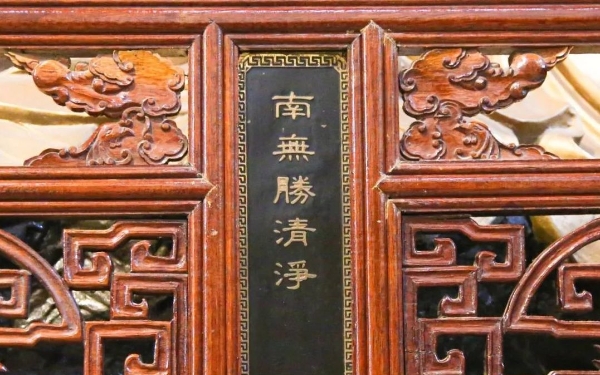 南無勝清淨